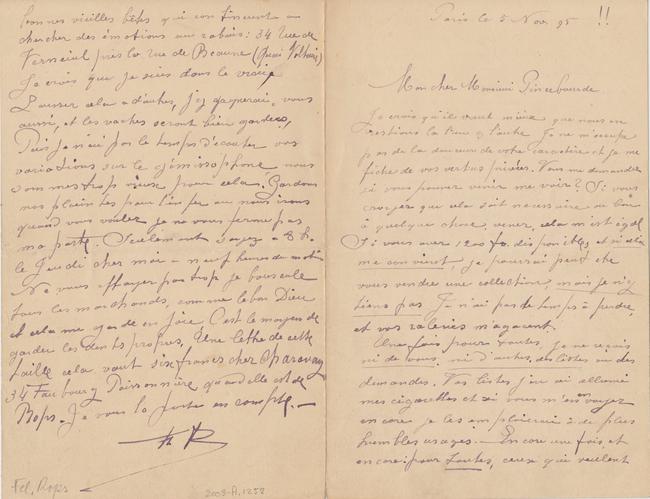 Paris le 5 Nov. 95 !!
Mon cher Monsieur Pincebourde.
Je crois qu'il vaut mieux que nous en
restions là l'un & l'autre. Je ne m'occupe
pas de la douceur de votre caractère et je me
fiche de vos vertus privées. Vous me demandez
si vous pouvez venir me voir? Si vous
croyez que cela soit nécessaire ou bon
à quelque chose, venez, cela m'est égal
Si vous avez 1200 fr. disponibles, et si cela
me convient, je pourrai peut être
vous vendre une collection, mais je n'y
tiens pas. Je n'ai pas de temps à perdre,
et vos âneries m'agacent.
Une fois pour toutes, je ne reçois
ni de vous, ni d'autres, des listes ou des
demandes. Vos listes j'en ai allumé
mes cigarettes et si vous m'en envoyez
encore je les emploierai à de plus
humbles usages. — Encore une fois, et
encore: pour toutes, ceux qui veulent
bonnes vieilles bêtes qui continuent à
chercher des émotions au rabais: 34 rue de
Verneuil près la rue de Beaune (Quai Voltaire)
Je crois que je suis dans le vrai,
Laissez cela à d'autres, j'y gagnerai, vous
aussi, et les vaches seront bien gardées,
Puis je n'ai pas le temps d'écouter vos
variations sur le gémissophone, nous
sommes trop vieux pour cela. Gardons
nos plaintes pour l'enfer où nous irons
quand vous voulez je ne vous ferme pas
ma porte. Seulement soyez à 8 h.
le Jeudi chez moi — neuf heures du matin
Ne vous effrayez pas trop je bouscule
tous les marchands, comme le bon Dieu
et cela me garde en joie. C'est le moyen de
garder les dents propres. Une lettre de cette
taille cela vaut six francs chez Charavay
34 Faubourg Poissonnière quand elle est de
Rops. Je vous la porte en compte. —
F R
Fel. Rops
2009-A.1252